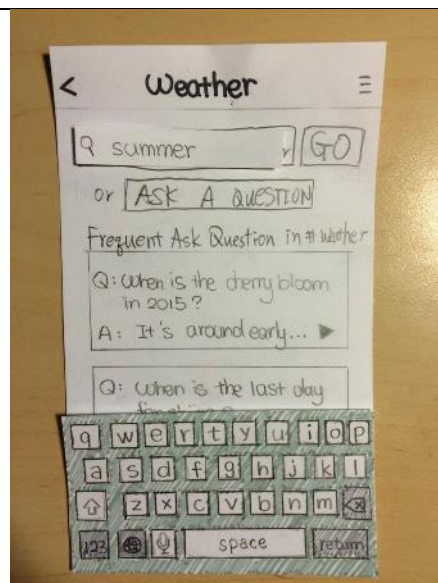 < Weather
summer GO
or ASK A QUESTION
Frequent Ask Question in # Weather
Q: When is the cherry bloom
in 2015?
A: It's around early...
Q: When is the last day
q w e r t y u i o p
a s d f g h j k l
z x c v b n m
123 space return